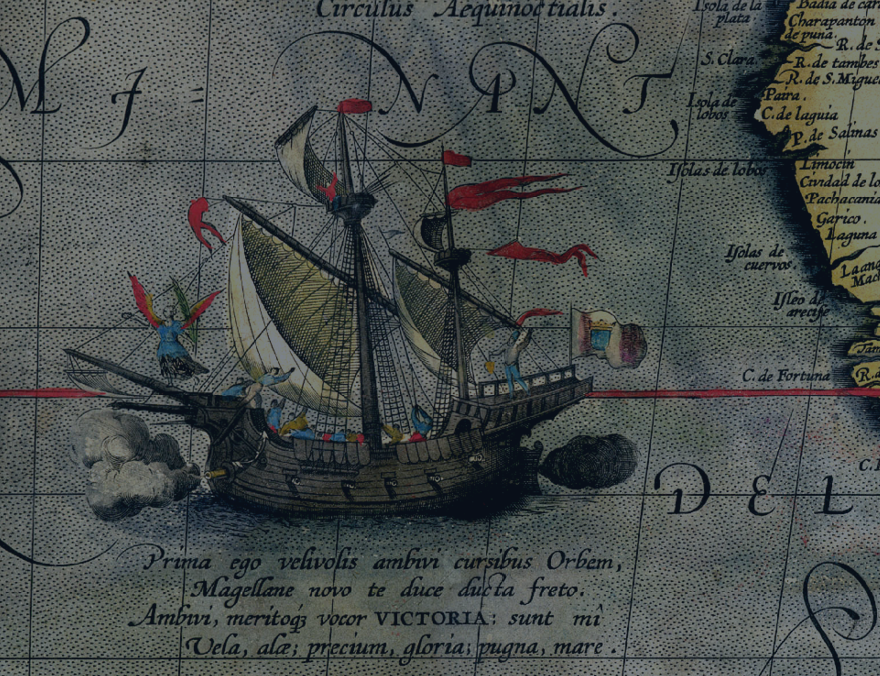 Circulus Aequinoctialis.
Isola de la
plata.
Badia de car
Charapanton
de puna.
S. Clara.
R. de S
R. de tambes
R. de S. Migue
Isola de
lobos
Paira.
C. de laguia
P. de Salinas
Isolas de lobos
Limocin
Cividad de lo
Pachacama
Garico.
Laguna
Isolas de
cuervos.
Isleo de
arecife
C. de Fortuna
DEL
Prima ego velivolis ambivi cursibus Orbem,
Magellane novo te duce ducta freto.
Ambivi, meritoq₃ vocor VICTORIA: sunt mî
Vela, alæ; precium, gloria; pugna, mare.